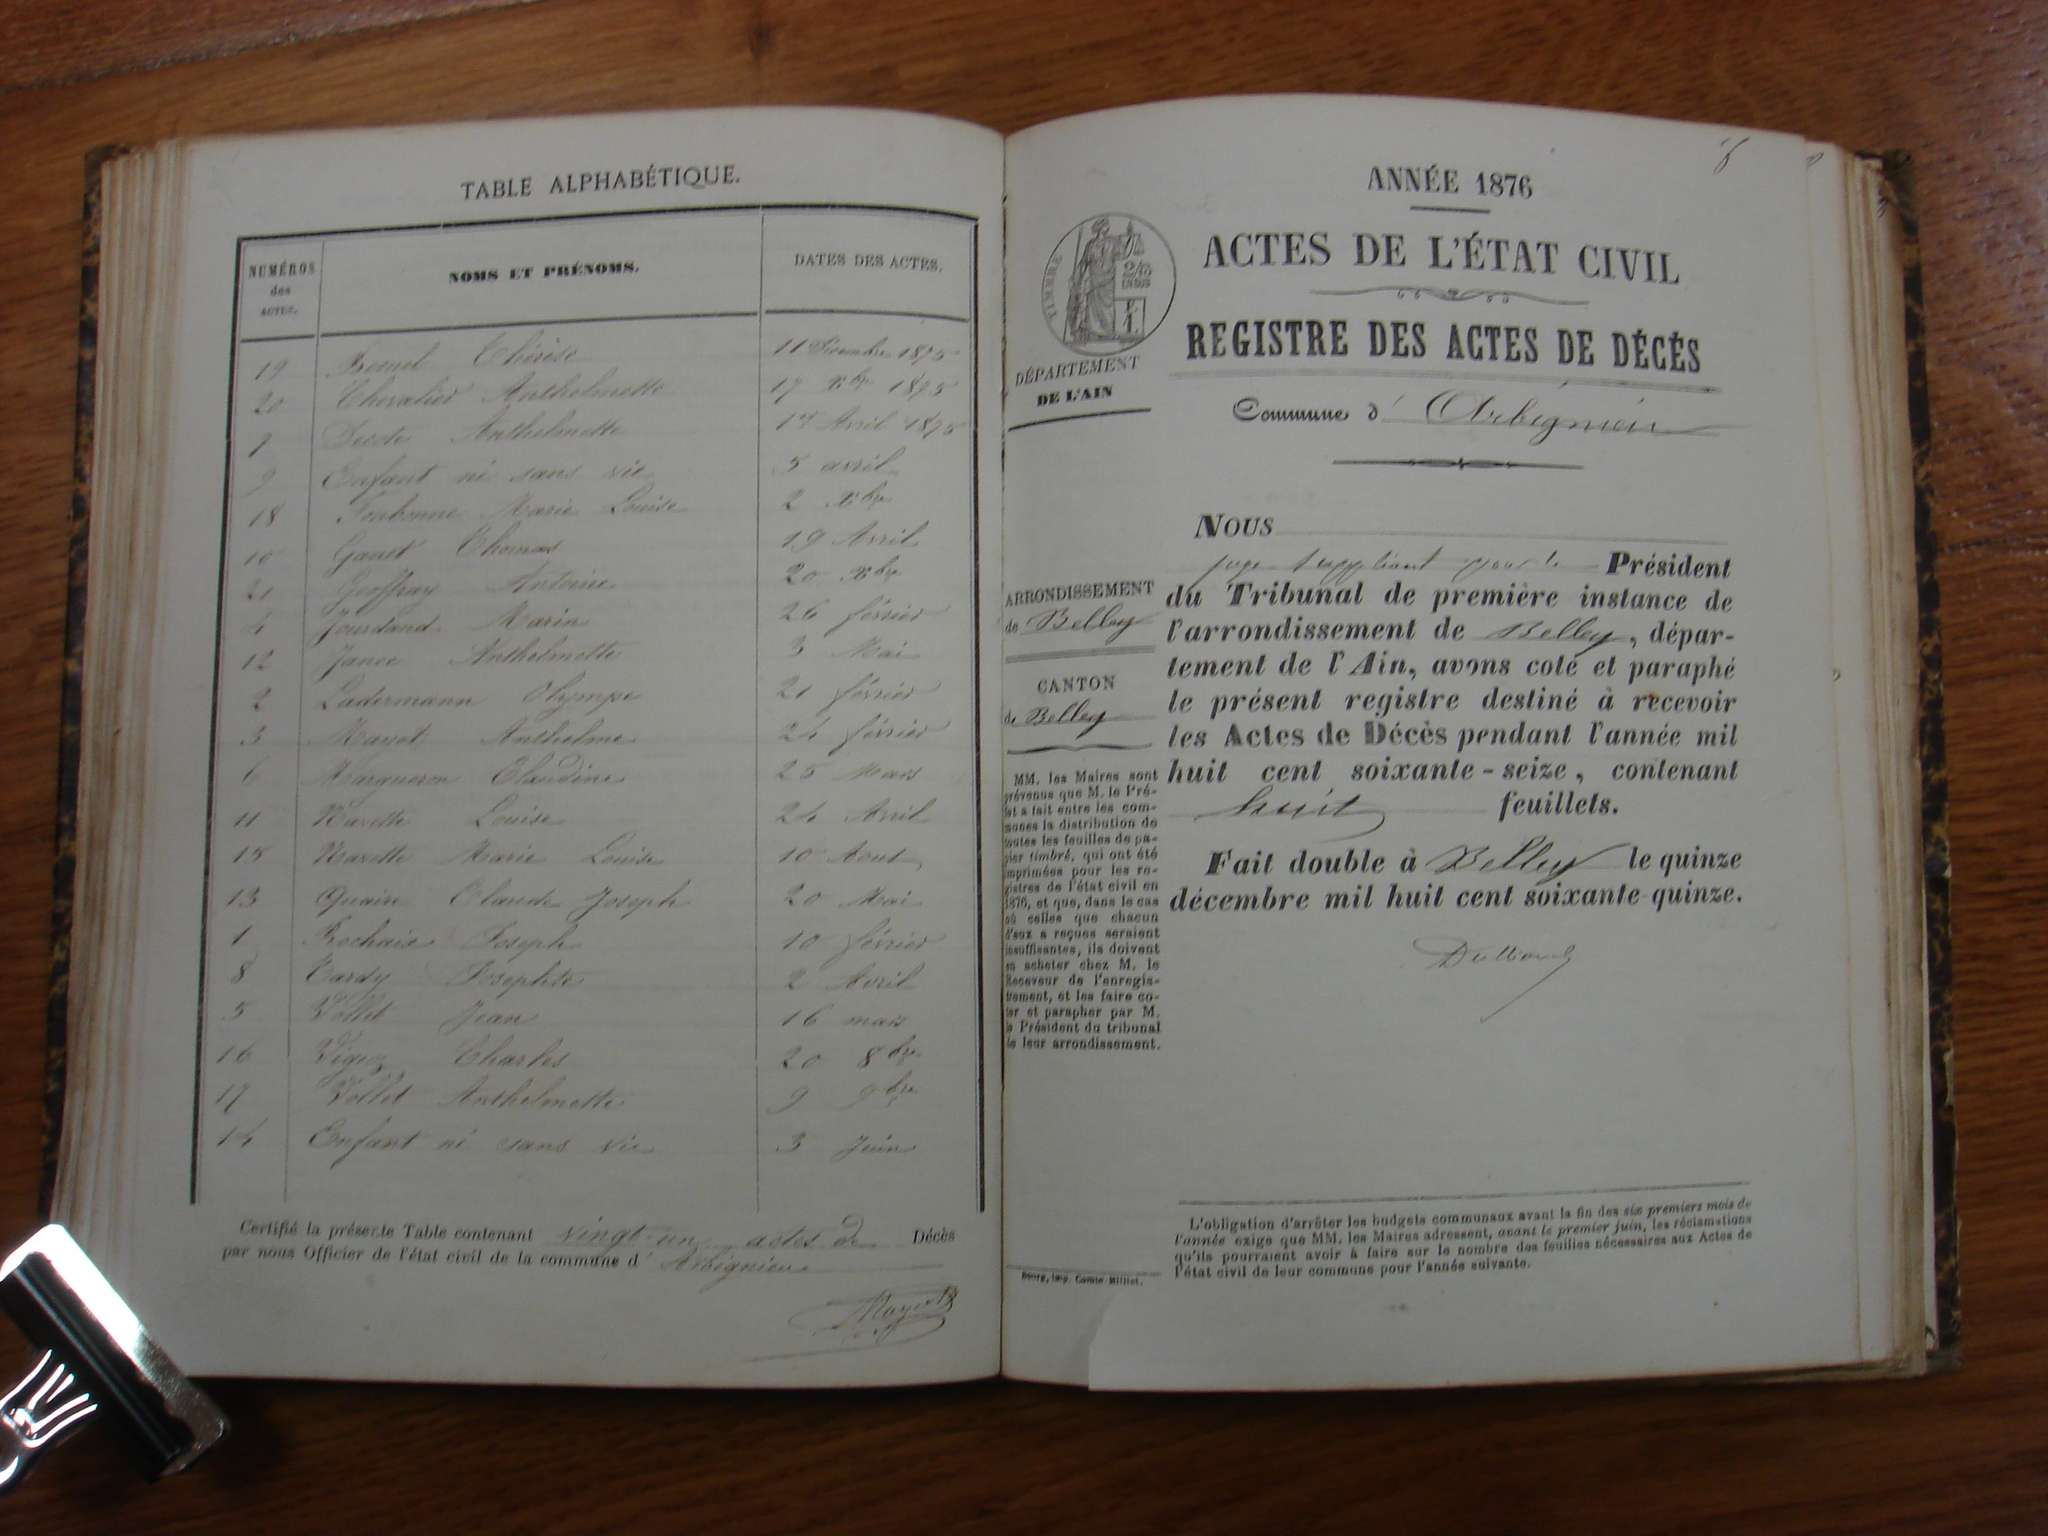 TABLE ALPHABÉTIQUE.
NUMÉROS des ACTES.
NOMS ET PRÉNOMS.
DATES DES ACTES.
19 Thérèse 11 Décembre 1875
20 Chevalier Anthelmette 17 Xbre 1875
7 Anthelmette 17 Avril 1875
9 Enfant né sans vie 5 avril
18 Marie Louise 2 Xbre
10 Ganet Thomas 19 Avril
21 Geoffray Antoine 20 Xbre
4 Jourdand Marin 26 février
12 Janee Anthelmette 3 Mai
2 Ladermann Olympe 21 février
3 Mayet Anthelme 24 février
6 Margueron Claudine 25 Mars
11 Navette Louise 24 Avril
15 Navette Marie Louise 10 Aout
13 Quain Claude Joseph 20 Mai
1 Rochaix Joseph 10 février
8 Tardy Josephte 2 Avril
5 Vollet Jean 16 mars
16 Charles 20 8bre
17 Vollet Anthelmette 9 9bre
14 Enfant né sans vie 3 Juin
Certifié la présente Table contenant vingt-un actes de Décès
par nous Officier de l'état civil de la commune d' Arbignieu
Mayet
ANNÉE 1876
ACTES DE L'ÉTAT CIVIL
REGISTRE DES ACTES DE DÉCÈS
Commune d' Arbignieu
TIMBRE
DÉPARTEMENT
DE L'AIN
ARRONDISSEMENT
de Belley
CANTON
de Belley
MM. les Maires sont
prévenus que M. le Pré-
fet a fait entre les com-
munes la distribution de
toutes les feuilles de pa-
pier timbré, qui ont été
imprimées pour les re-
gistres de l'état civil en
1876, et que, dans le cas
où celles que chacun
d'eux a reçues seraient
insuffisantes, ils doivent
en acheter chez M. le
Receveur de l'enregis-
trement, et les faire co-
ter et parapher par M.
le Président du tribunal
de leur arrondissement.
Bourg, imp. Comte-Milliet.
NOUS
juge suppléant pour le Président
du Tribunal de première instance de
l'arrondissement de Belley, dépar-
tement de l'Ain, avons coté et paraphé
le présent registre destiné à recevoir
les Actes de Décès pendant l'année mil
huit cent soixante-seize, contenant
huit feuillets.
Fait double à Belley le quinze
décembre mil huit cent soixante-quinze.
L'obligation d'arrêter les budgets communaux avant la fin des six premiers mois de
l'année exige que MM. les Maires adressent, avant le premier juin, les réclamations
qu'ils pourraient avoir à faire sur le nombre des feuilles nécessaires aux Actes de
l'état civil de leur commune pour l'année suivante.